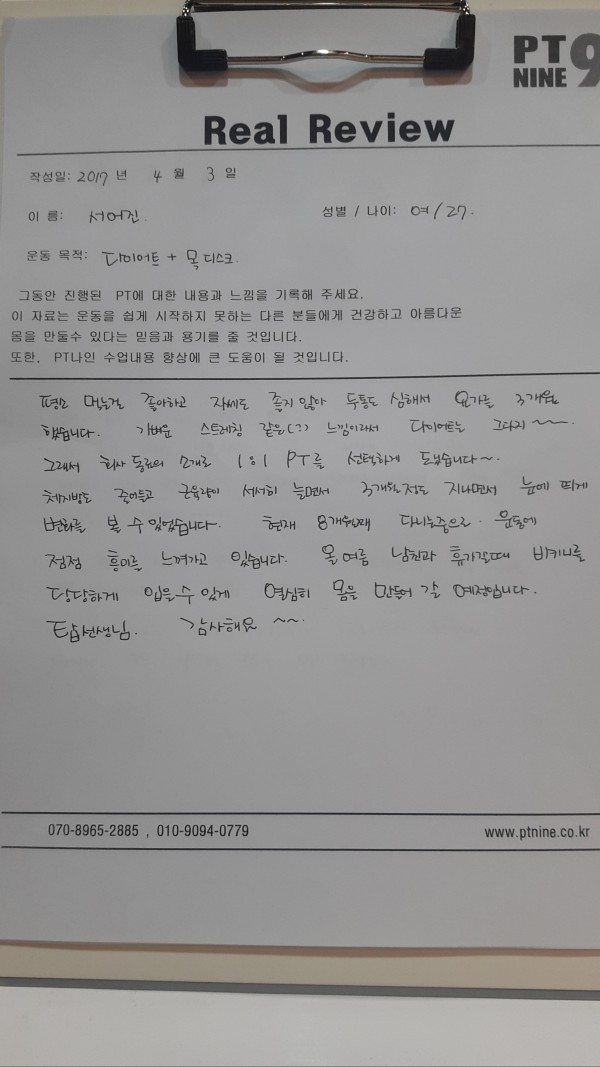 PT 9
NINE
Real Review
작성일: 2017 년 4 월 3 일
이 름: 서어진. 성별 / 나이: 여/27.
운동 목적: 다이어트 + 목 디스크.
그동안 진행된 PT에 대한 내용과 느낌을 기록해 주세요.
이 자료는 운동을 쉽게 시작하지 못하는 다른 분들에게 건강하고 아름다운
몸을 만들수 있다는 믿음과 용기를 줄 것입니다.
또한, PT나인 수업내용 향상에 큰 도움이 될 것입니다.
평소 먹는걸 좋아하고 자세도 좋지 않아 두통도 심해서 요가를 3개월
했습니다. 가벼운 스트레칭 같은(?) 느낌이라서 다이어트는 그다지~~
그래서 회사 동료의 소개로 1:1 PT를 선택하게 되었습니다~.
체지방도 줄어들고 근육량이 서서히 늘면서 3개월정도 지나면서 눈에 띄게
변화를 볼 수 있었습니다. 현재 8개월째 다니는중으로. 운동에
점점 흥미를 느껴가고 있습니다. 올 여름 남친과 휴가갈때 비키니를
당당하게 입을수 있게 열심히 몸을 만들어 갈 예정입니다.
선생님. 감사해요 ~~.
070-8965-2885 , 010-9094-0779 www.ptnine.co.kr